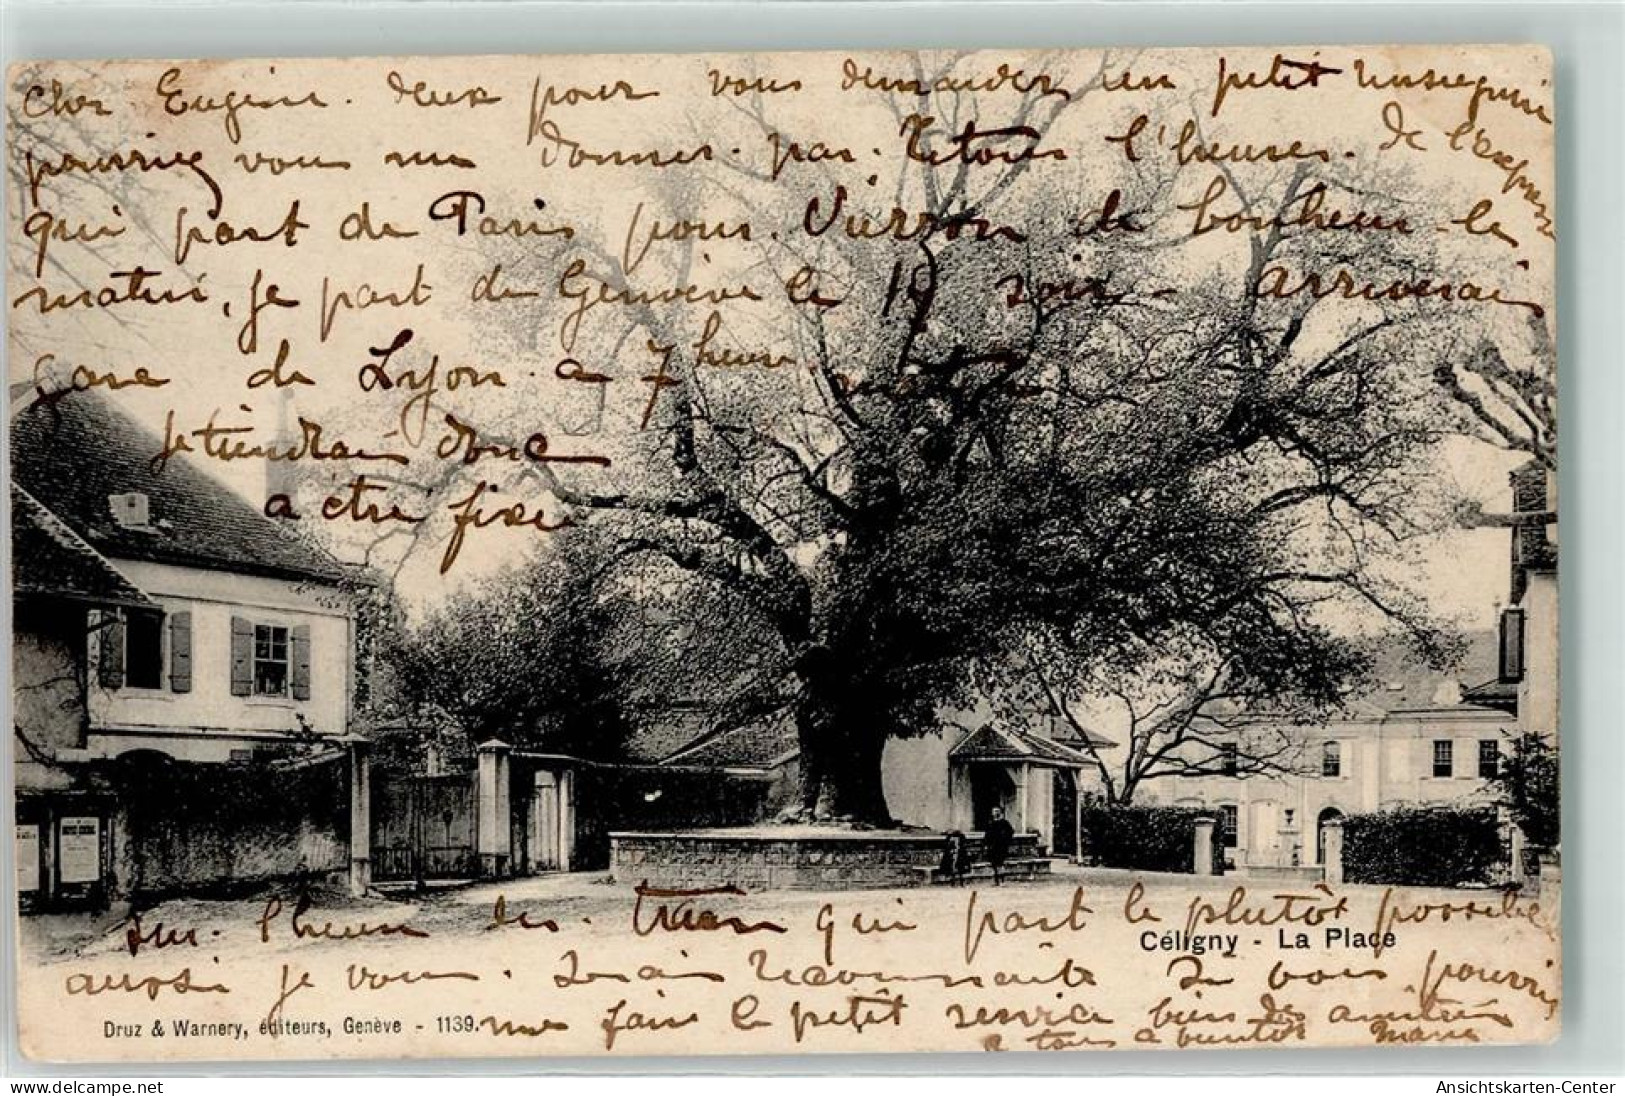 cher Eugène. deux pour vous demander un petit
pourriez vous me donner. par. Retour l'heures. de l'express
qui part de Paris pour. Vierzon de bonheur le
matin, je part de Genève le 19 soir arriverai
gare de Lyon a 7 heure matin
je tiendrai donc
a être fixe
sur. l'heure des. train qui part le plutôt possible
Céligny - La Place
aussi je vous. serais reconnaite si vous pourriez
Druz & Warnery, éditeurs, Genève - 1139.
me faire le petit service bien des amitiés
a tous a bientôt Marie
Ansichtskarten-Center